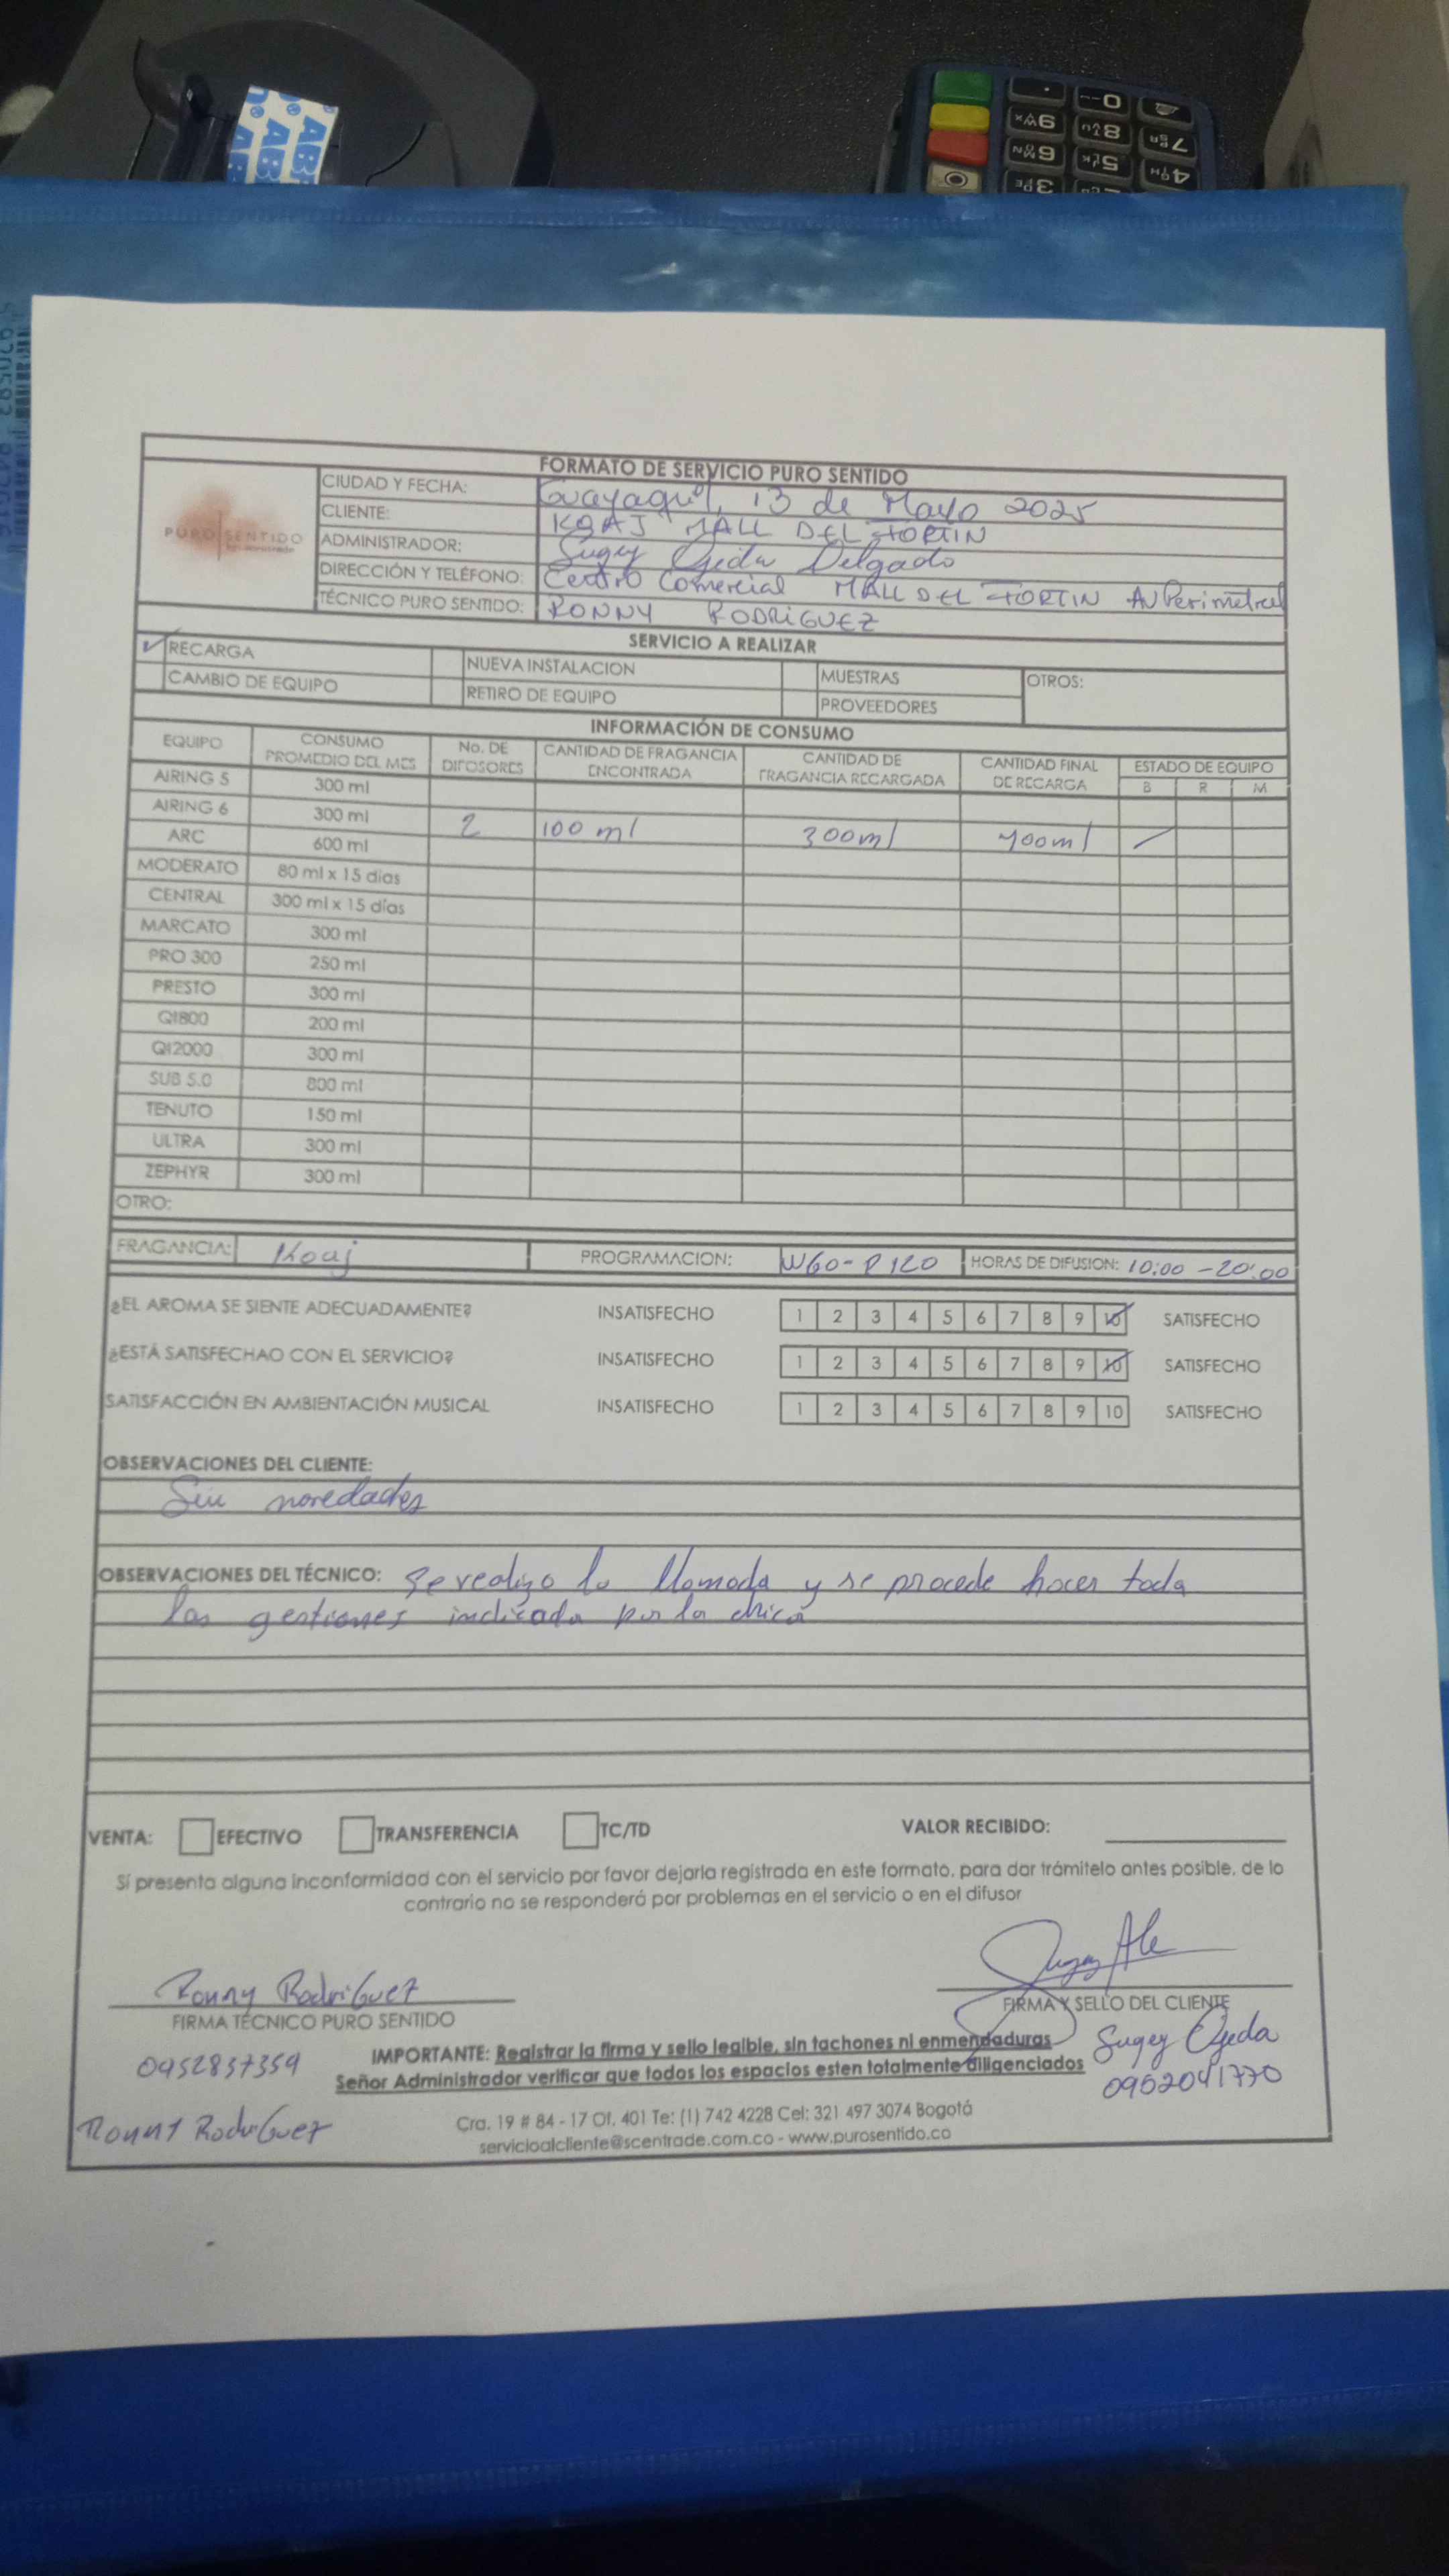 FORMATO DE SERVICIO PURO SENTIDO
PURO SENTIDO
CIUDAD Y FECHA: Guayaquil, 13 de Mayo 2025
CLIENTE: KOAJ MALL DEL FORTIN
ADMINISTRADOR: Sugey Ojeda Delgado
DIRECCIÓN Y TELÉFONO: Centro Comercial MALL DEL FORTIN AV Perimetral
TÉCNICO PURO SENTIDO: RONNY RODRIGUEZ
SERVICIO A REALIZAR
✓ RECARGA NUEVA INSTALACION MUESTRAS OTROS:
CAMBIO DE EQUIPO RETIRO DE EQUIPO PROVEEDORES
INFORMACIÓN DE CONSUMO
EQUIPO CONSUMO PROMEDIO DEL MES No. DE DIFOSORES CANTIDAD DE FRAGANCIA ENCONTRADA CANTIDAD DE FRAGANCIA RECARGADA CANTIDAD FINAL DE RECARGA ESTADO DE EQUIPO
B R M
AIRING 5 300 ml
AIRING 6 300 ml 2 100 ml 300ml 400ml
ARC 600 ml
MODERATO 80 ml x 15 días
CENTRAL 300 ml x 15 días
MARCATO 300 ml
PRO 300 250 ml
PRESTO 300 ml
QI800 200 ml
QI2000 300 ml
SUB 5.0 800 ml
TENUTO 150 ml
ULTRA 300 ml
ZEPHYR 300 ml
OTRO:
FRAGANCIA: Koaj PROGRAMACION: W60-P120 HORAS DE DIFUSION: 10:00 -20:00
¿EL AROMA SE SIENTE ADECUADAMENTE? INSATISFECHO 1 2 3 4 5 6 7 8 9 10 SATISFECHO
¿ESTÁ SATISFECHAO CON EL SERVICIO? INSATISFECHO 1 2 3 4 5 6 7 8 9 10 SATISFECHO
SATISFACCIÓN EN AMBIENTACIÓN MUSICAL INSATISFECHO 1 2 3 4 5 6 7 8 9 10 SATISFECHO
OBSERVACIONES DEL CLIENTE:
Sin novedades
OBSERVACIONES DEL TÉCNICO: Se realizo la llamada y se procede hacer toda
las gestiones indicada por la chica
VENTA: EFECTIVO TRANSFERENCIA TC/TD VALOR RECIBIDO:
Sí presenta alguna inconformidad con el servicio por favor dejarla registrada en este formato, para dar trámitelo antes posible, de lo
contrario no se responderá por problemas en el servicio o en el difusor
Ronny Rodriguez Sugey Ale
FIRMA TÉCNICO PURO SENTIDO FIRMA Y SELLO DEL CLIENTE
0952837359 Sugey Ojeda
0962041770
IMPORTANTE: Registrar la firma y sello legible, sin tachones ni enmendaduras
Señor Administrador verificar que todos los espacios esten totalmente diligenciados
Ronny Rodriguez
Cra. 19 # 84 - 17 Of. 401 Te: (1) 742 4228 Cel: 321 497 3074 Bogotá
servicioalcliente@scentrade.com.co - www.purosentido.co